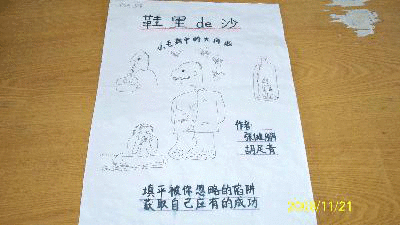 鞋里de沙
小毛病中的大问题
作者:
张健鹏
胡足青
填平被你忽略的陷阱
获取自己应有的成功
2008/11/21